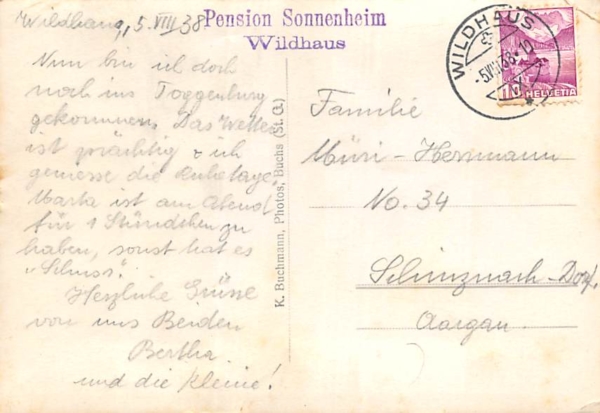 Wildhaus, 5. VIII 38.
Pension Sonnenheim
Wildhaus
Nun bin ich doch
noch ins Toggenburg
gekommen. Das Wetter
ist prächtig & ich
geniesse die Ruhetage.
Marta ist am Abend
für 1 Stündchen zu
haben, sonst hat es
"Schuss".
Herzliche Grüsse
von uns Beiden
Bertha
und die Kleine!
K. Buchmann, Photos, Buchs (St. G.)
WILDHAUS
-5.VIII.38-10
10
HELVETIA
Familie
Müri-Herrmann
No. 34
Schinznach-Dorf.
Aargau.